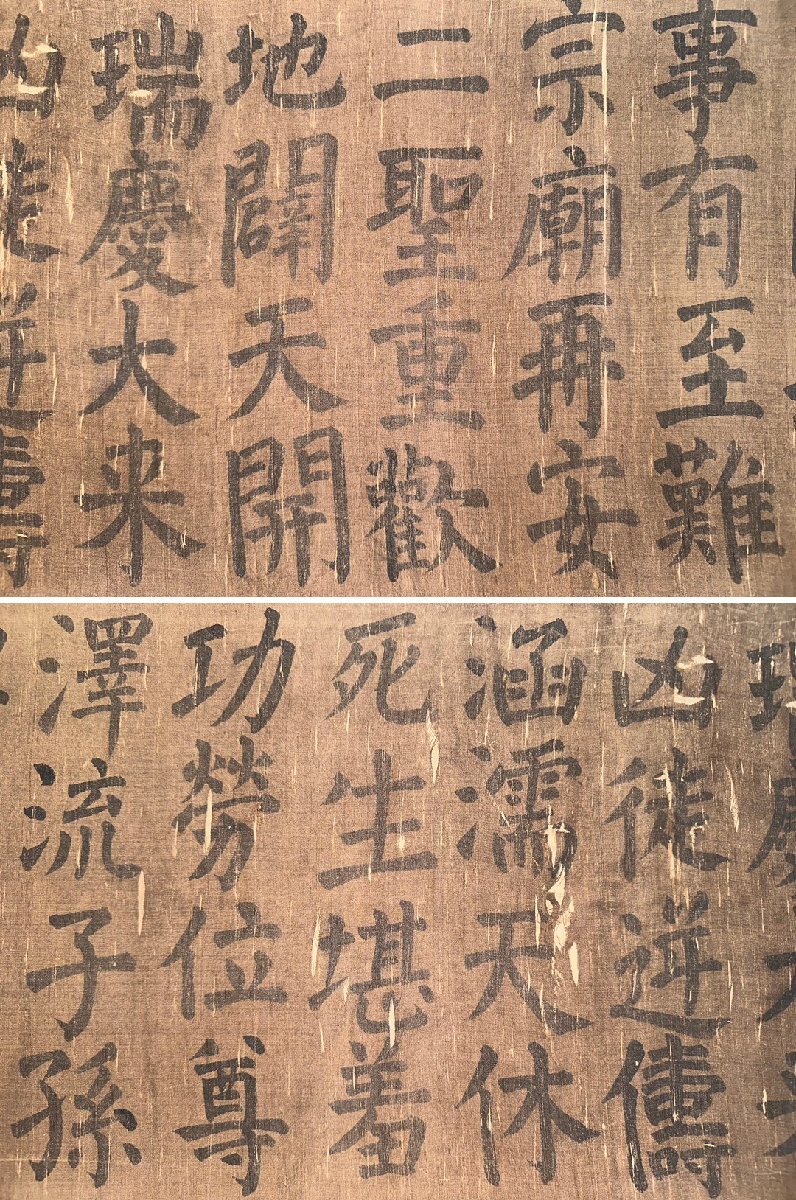 事有至難
宗廟再安
二聖重歡
地闢天開
瑞慶大来
凶徒逆儔
涵濡天休
死生堪羞
功勞位尊
澤流子孫